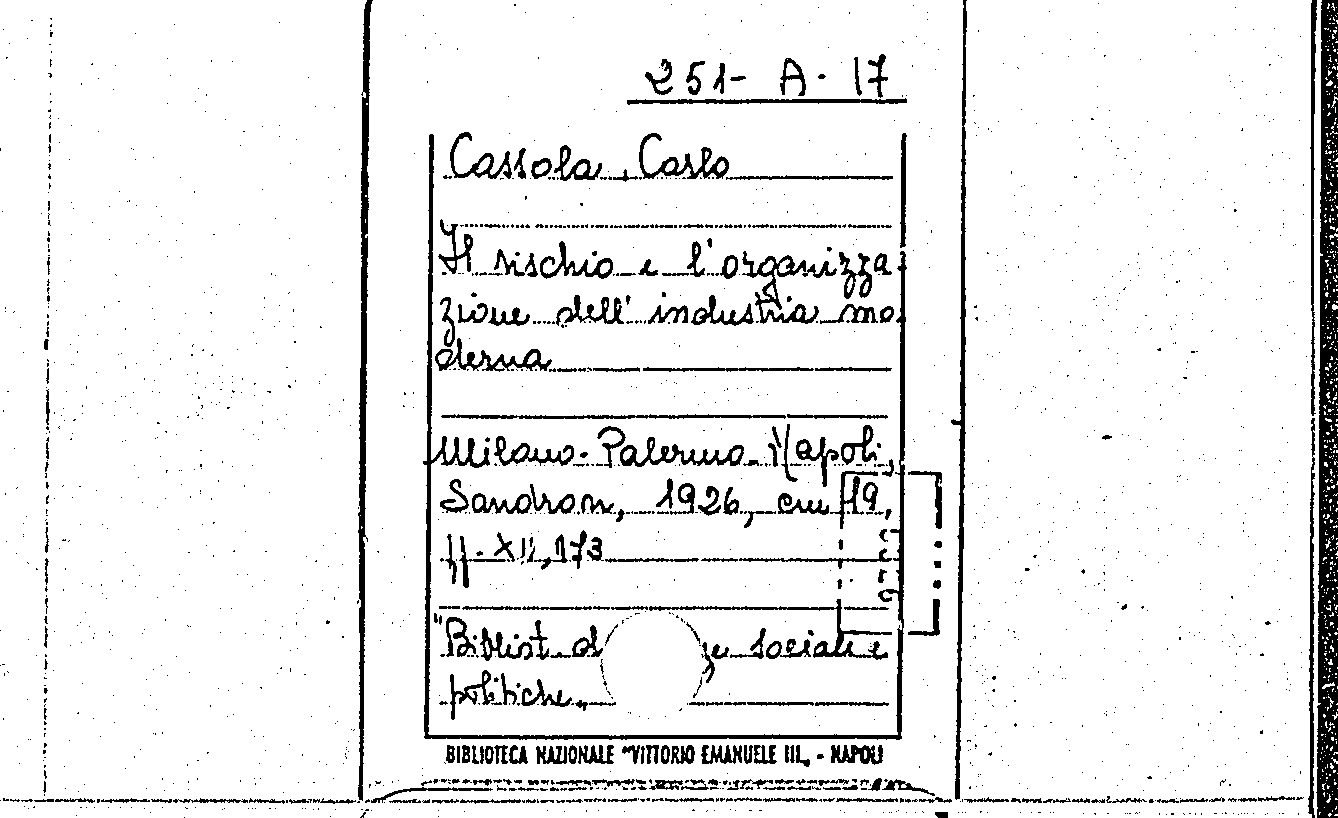 251- A. 17
Cassola, Carlo
Il rischio e l'organizza-
zione dell'industria mo-
derna
Milano-Palermo-Napoli,
Sandron, 1926, cm 19,
pp. XII, 173
"Bibliot. d sociali e
politiche"
BIBLIOTECA NAZIONALE "VITTORIO EMANUELE III" - NAPOLI